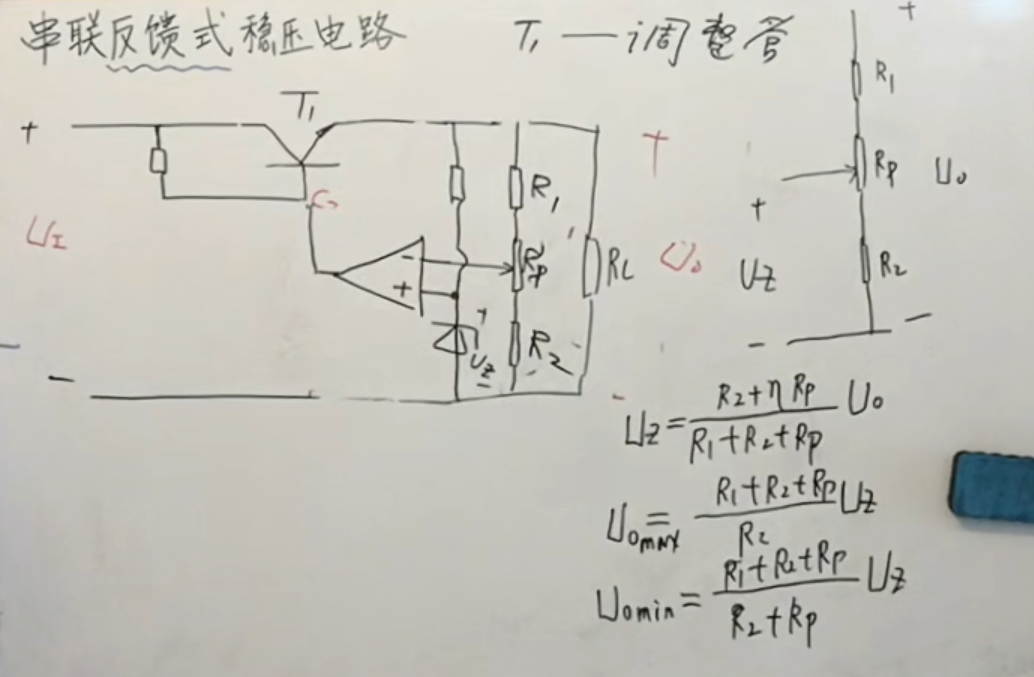 串联反馈式稳压电路 T₁—调整管
T₁
+
U_I
−
R₁
Rp
R₂
−
+
+
U_Z
−
R_L
+
U₀
−
+
R₁
Rp
U₀
+
U_Z
R₂
−
−
U_Z = (R₂+ηRp)/(R₁+R₂+Rp) U₀
U₀max = (R₁+R₂+Rp)/R₂ U_Z
U₀min = (R₁+R₂+Rp)/(R₂+Rp) U_Z